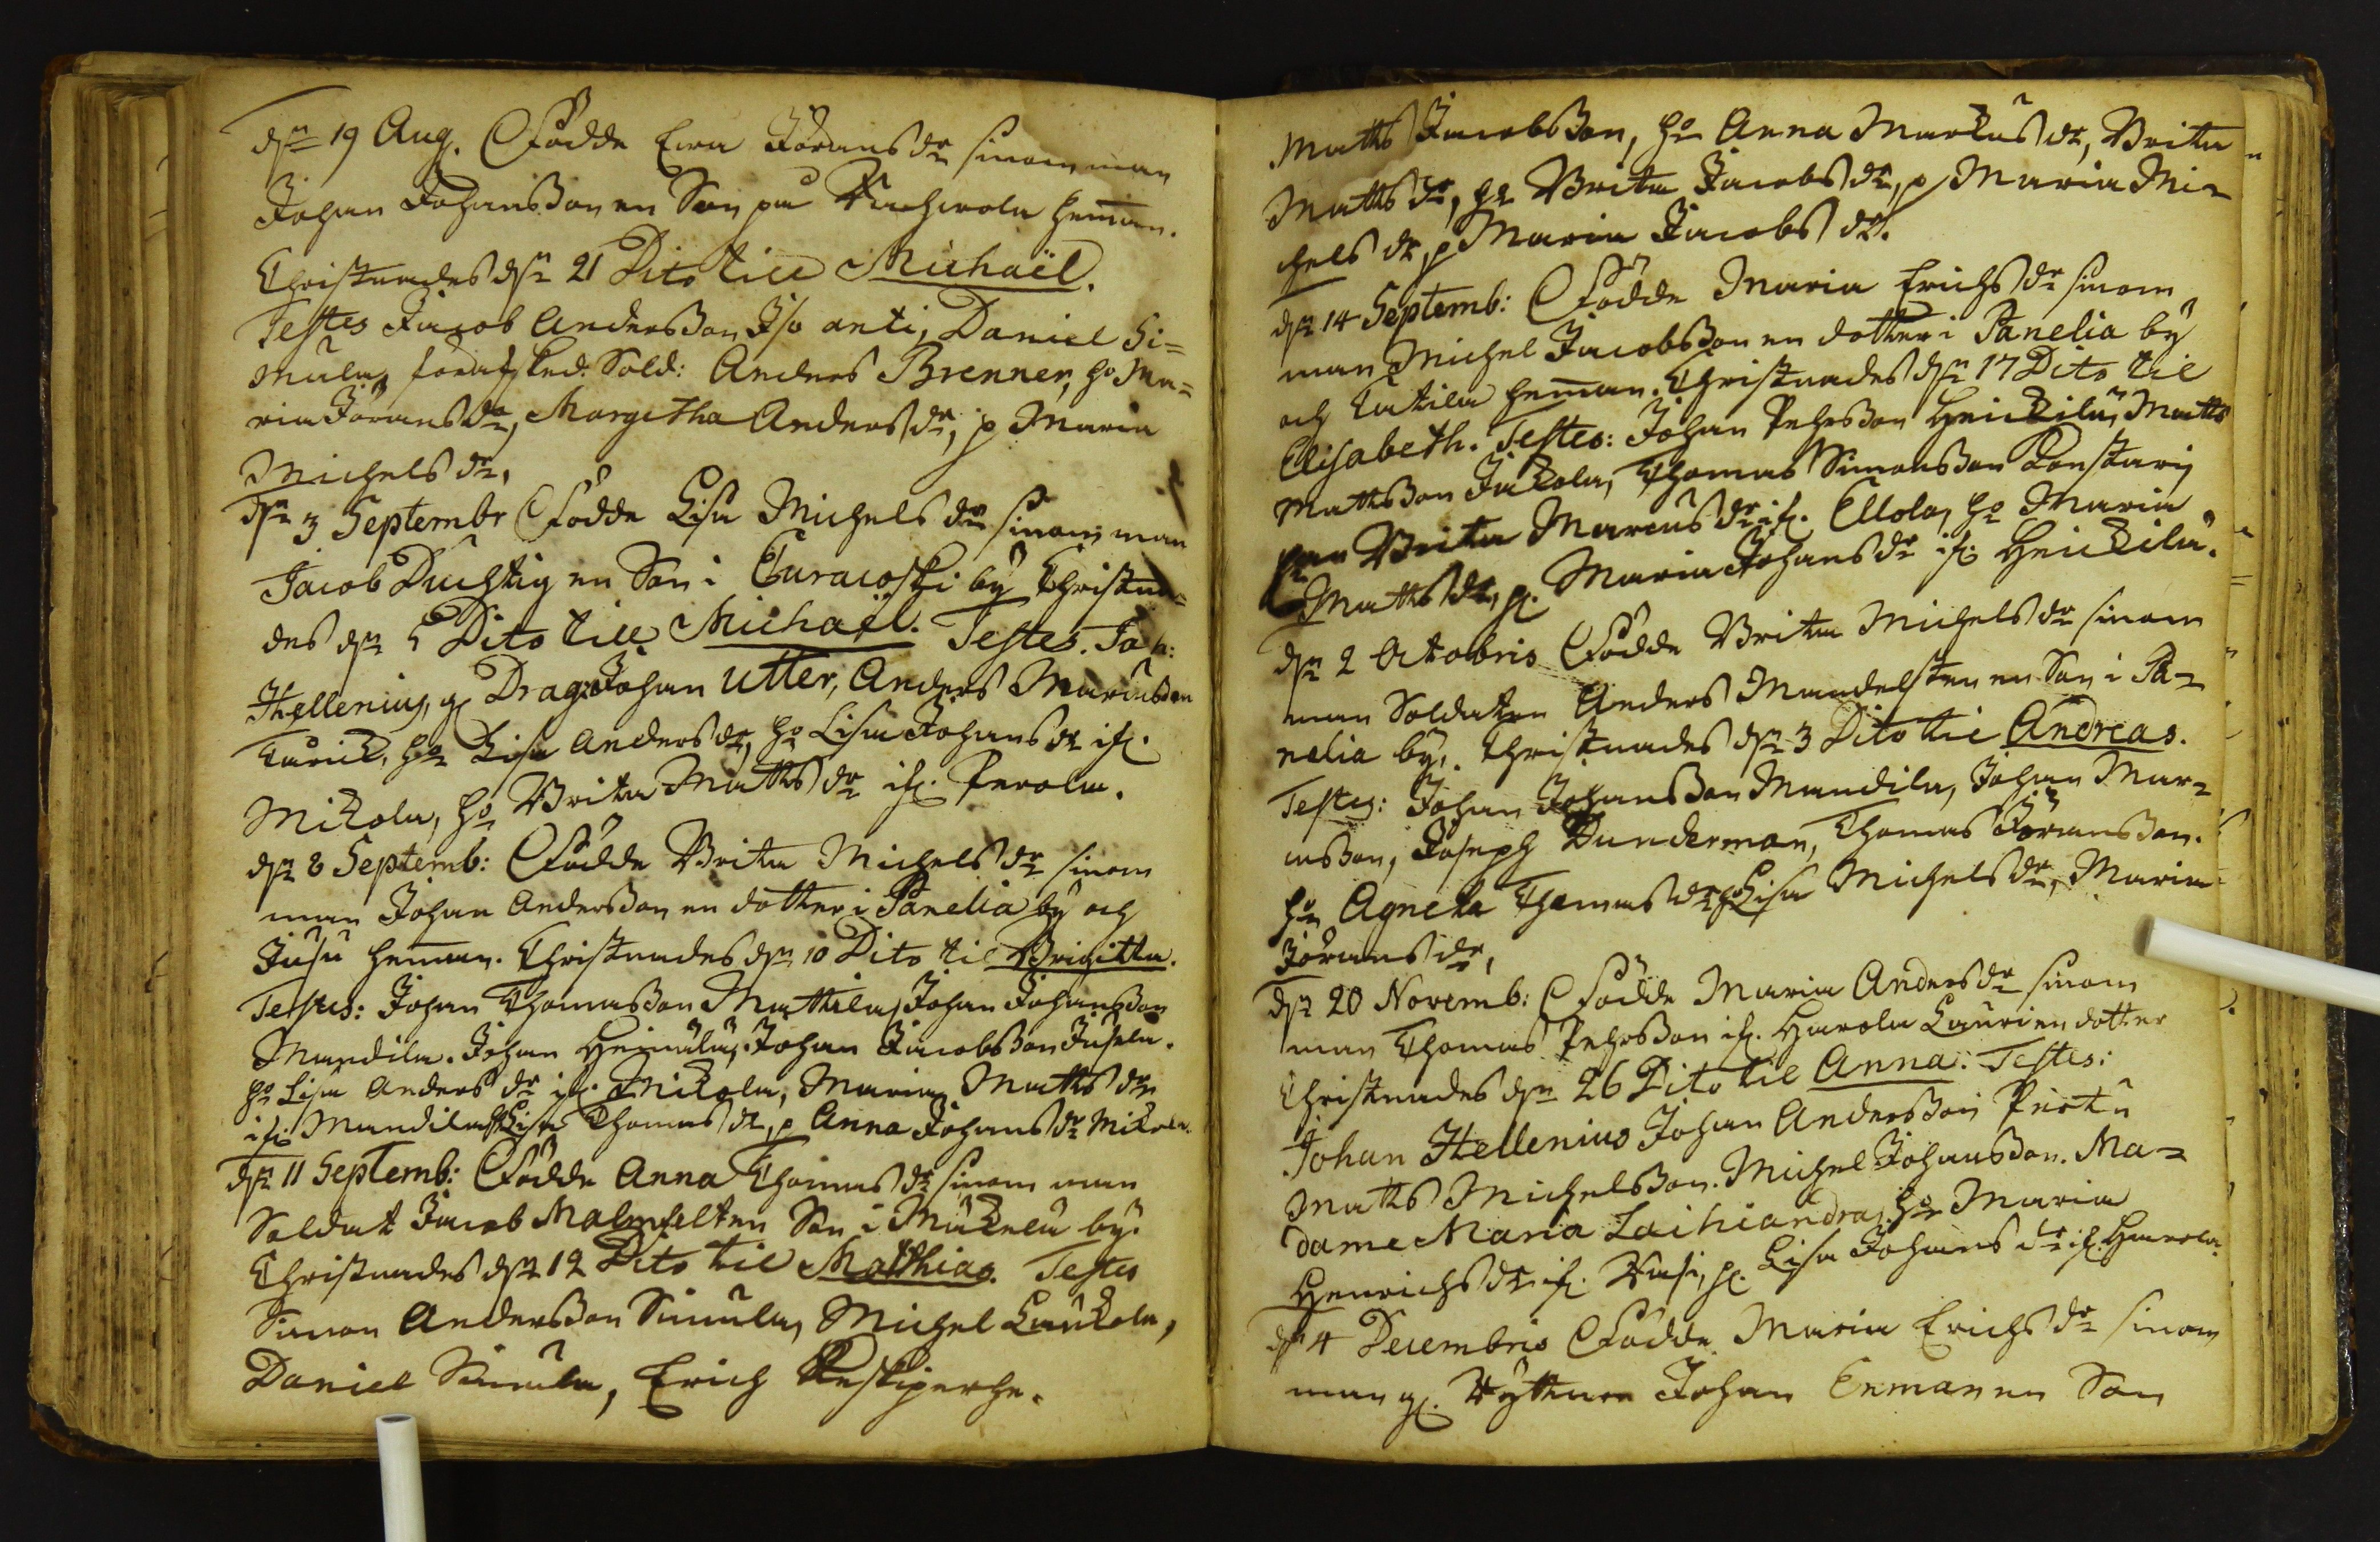 dn 19 Aug. Födde Ewa Jöransdr sinom man
Johan Johansson en Son på hemman.
Christnades dn 21 Dito till Michaël.
Testes Jacob Andersson Iso anti, Daniel Si=
mula, förafsked. Sold: Anders Brenner, ho Ma=
ria Jöransdr, Margetha Andersdr, p Maria
Michelsdr.
dn 3 Septembr Födde Lisa Michelsdr sinom man
Jacob Duchtig en Son i Curacoski by Christna=
des dn 5 Dito till Michaël. Testes. Joh:
Hellenius, g Drag: Johan Utter, Anders Marcusson
hu Lisa Andersdr, ho Lisa Johansdr if.
Mikola, ho Brita Mattsdr if. Perola.
dn 8 Septemb: Födde Brita Michelsdr sinom
man Johan Andersson en dotter i Panelia by och
Jusu hemman. Christnades dn 10 Dito til Brigitta.
Testes: Johan Thomasson Mattila, Johan Johansson
Mandila. Johan Heimälä, Johan Jacobsson Jusela.
ho Lisa Andersdr if. Mikola, Maria Mattsdr
if. Mandila, Lisa Thomasdr, p Anna Johansdr Mikola.
dn 11 Septemb: Födde Anna Thomasdr sinom man
Soldat Jacob Malmfelt en Son i Mukelu by.
Christnades dn 12 Dito til Matthias. Testes
Simon Andersson Simula, Michel Laukola,
Daniel Simula, Erich
Matts Jacobsson, ho Anna Markusdr, Brita
Mattsdr, ho Brita Jacobsdr, p Maria Mi=
chelsdr, p Maria Jacobsdr.
dn 14 Septemb: Födde Maria Erichsdr sinom
man Michel Jacobsson en dotter i Panelia by
och Eutila hemman. Christnades dn 17 Dito til
Elisabeth. Testes: Johan Pehrsson Heickilä, Matts
Mattsson Jukola, Thomas Simonsson
Brita Marcusdr if. Ellola, ho Maria
Mattsdr, p. Maria Johansdr if. Heickilä.
dn 2 Octobris Födde Brita Michelsdr sinom
man Soldaten Anders Mandelsten en Son i Pa=
nelia by. Christnades dn 3 Dito til Andreas.
Testes: Johan Johansson Mandila, Johan Mar=
cusson, Joseph Dunderman, Thomas Jöransson.
ho Agneta Thomasdr, p Lisa Michelsdr, Maria
Jöransdr.
dn 20 Novemb: Födde Maria Andersdr sinom
man Thomas Pehrsson if. Harola Lauri en dotter
Christnades dn 26 Dito til Anna. Testes:
Johan Hellenius Johan Andersson Pertu
Matts Michelsson. Michel Johansson. Ma=
dame Maria Laihiandra, ho Maria
Henrichsdr if. p. Lisa Johansdr if. Harola.
dn 4 Decembris Födde Maria Erichsdr sinom
man g. Ryttare Johan Enman en Son